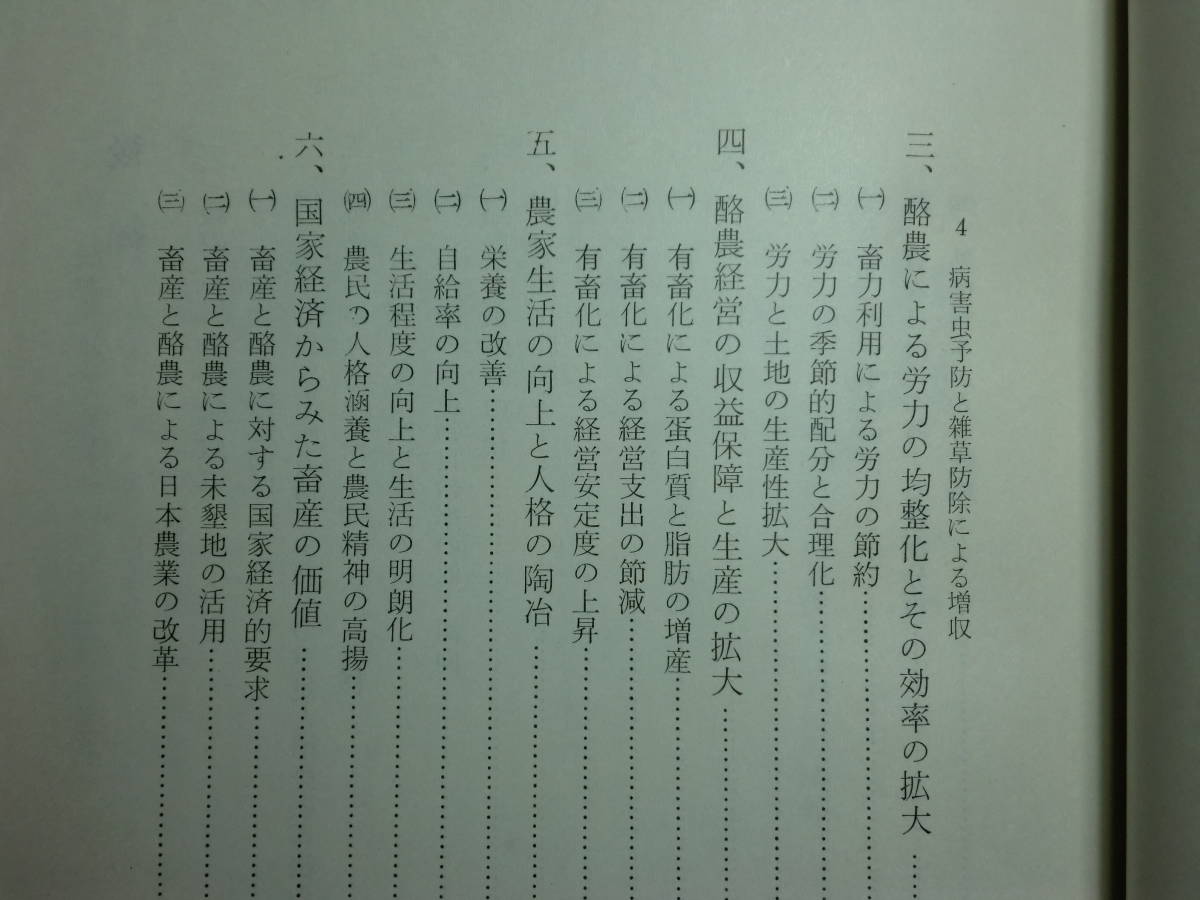 4 病害虫予防と雑草防除による増収
三、酪農による労力の均整化とその効率の拡大……
㈠ 畜力利用による労力の節約……
㈡ 労力の季節的配分と合理化……
㈢ 労力と土地の生産性拡大……
四、酪農経営の収益保障と生産の拡大……
㈠ 有畜化による蛋白質と脂肪の増産……
㈡ 有畜化による経営支出の節減……
㈢ 有畜化による経営安定度の上昇……
五、農家生活の向上と人格の陶冶……
㈠ 栄養の改善……
㈡ 自給率の向上……
㈢ 生活程度の向上と生活の明朗化……
㈣ 農民の人格涵養と農民精神の高揚……
六、国家経済からみた畜産の価値……
㈠ 畜産と酪農に対する国家経済的要求……
㈡ 畜産と酪農による未墾地の活用……
㈢ 畜産と酪農による日本農業の改革……